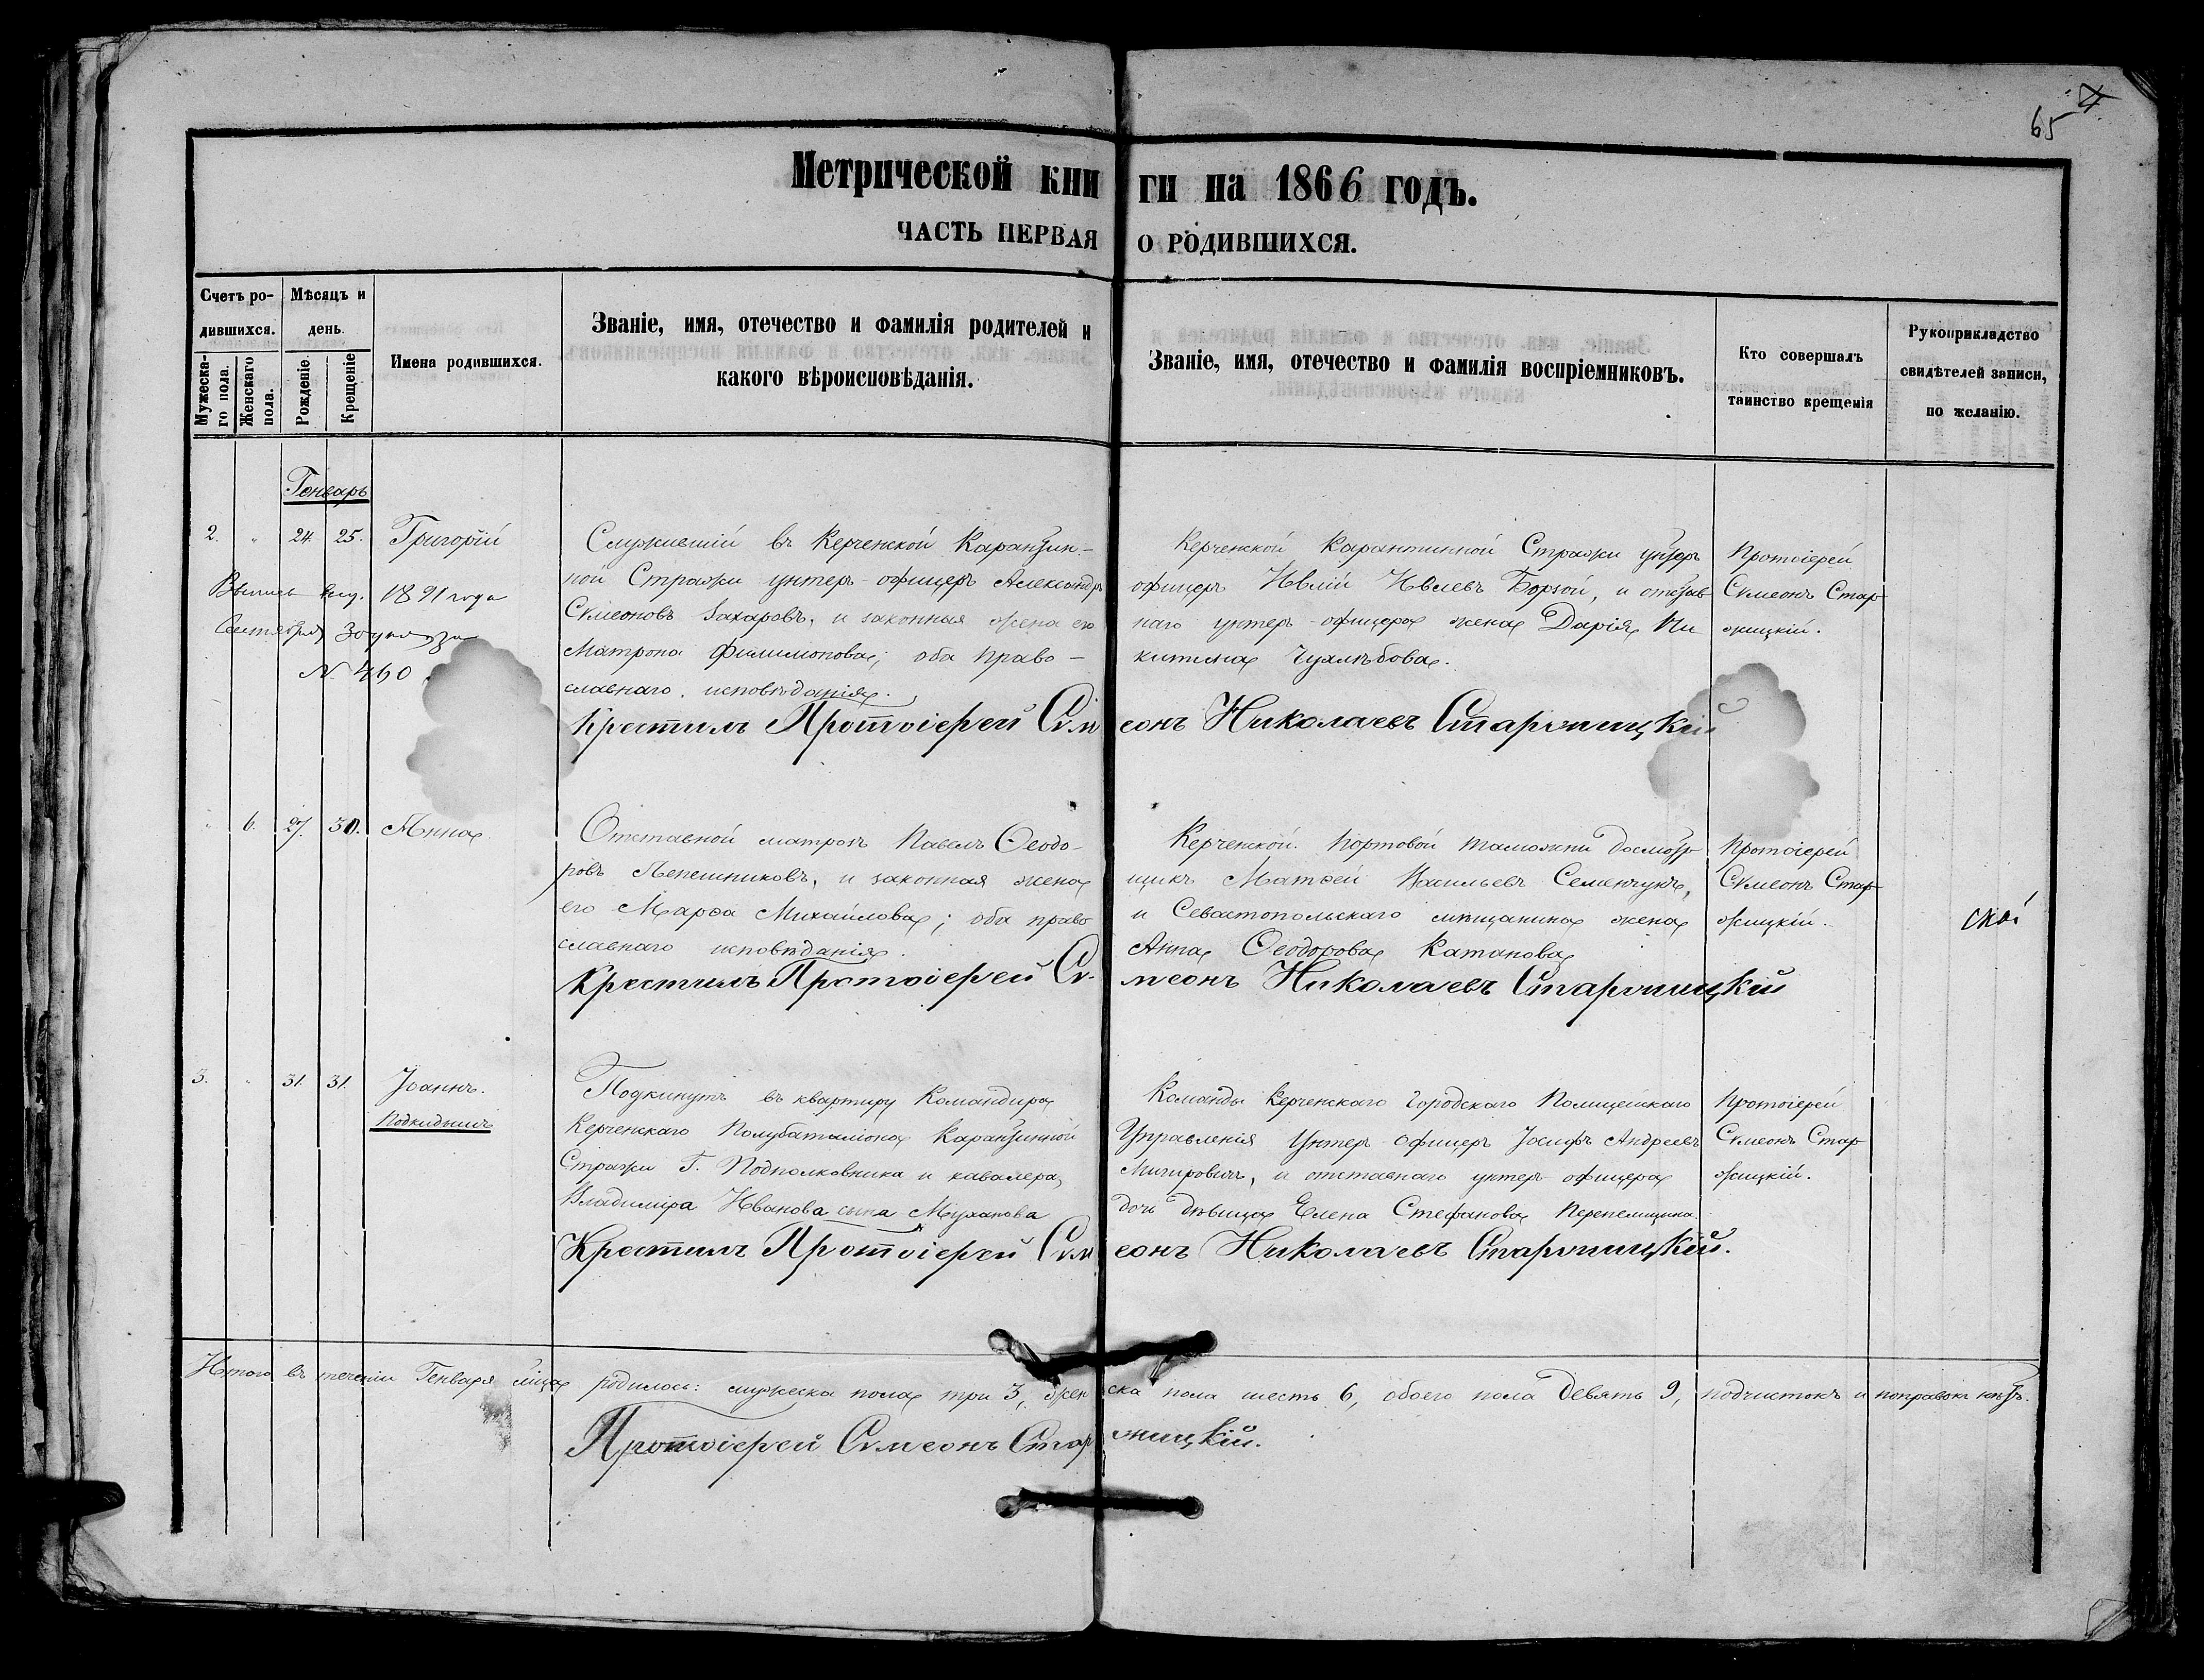 65 4
Метрической кни ги на 1866 годъ.
ЧАСТЬ ПЕРВАЯ О РОДИВШИХСЯ.
Счетъ ро-
дившихся.
Мужеска-
го пола.
Женскаго
пола.
Мѣсяцъ и
день.
Рожденіе.
Крещеніе
Имена родившихся.
Званіе, имя, отечество и фамилія родителей и
какого вѣроисповѣданія.
Званіе, имя, отечество и фамилія воспріемниковъ.
Кто совершалъ
таинство крещенія
Рукоприкладство
свидѣтелей записи,
по желанію.
Генварь
2. " 24. 25. Григорій
1891 года
Сентября 30
№ 460
Служившій въ Керченской Карантин-
ной Стражи унтеръ-офицеръ Александръ
Сѵмеоновъ Захаровъ, и законная жена его
Матрона Филимонова; оба право-
славнаго исповѣданія.
Керченской Карантинной Стражи унтеръ
офицеръ Ивлій Ивлевъ Борзой, и отстав
наго унтеръ-офицера жена Дарія Ни
китина Чухлѣбова.
Протоіерей
Сѵмеонъ Стар
жицкій.
Крестилъ Протоіерей Сѵм еонъ Николаевъ Старжицкій
" 6. 27. 30. Анна
Отставной матросъ Павелъ Ѳеодо-
ровъ Лепешниковъ, и законная жена
его Марѳа Михайлова; оба право
славнаго исповѣданія.
Керченской портовой таможни досмотр
щикъ Матѳей Васильевъ Семенчукъ,
и Севастопольскаго мѣщанина жена
Анна Ѳеодорова Катанова
Протоіерей
Сѵмеонъ Стар
жицкій.
Крестилъ Протоіерей Сѵ- меонъ Николаевъ Старжицкій
3. " 31. 31. Іоаннъ.
Подкидышъ
Подкинутъ въ квартиру Командира
Керченскаго Полубаталіона Карантинной
Стражи Г. Подполковника и кавалера,
Владиміра Иванова сына Муханова
Команды Керченскаго Городскаго Полицейскаго
Управленія Унтеръ-Офицеръ Іосифъ Андреевъ
и отставнаго унтеръ-офицера
дочь дѣвица Елена Стефанова Перепелицына.
Протоіерей
Сѵмеонъ Стар
жицкій.
Крестилъ Протоіерей Сѵм еонъ Николаевъ Старжицкій.
Итого въ теченіи Генваря мѣсяца родилось: мужеска пола три 3, жен ска пола шесть 6, обоего пола девять 9, подчистокъ и поправокъ нѣтъ.
Протоіерей Сѵмеонъ Стар жицкій.